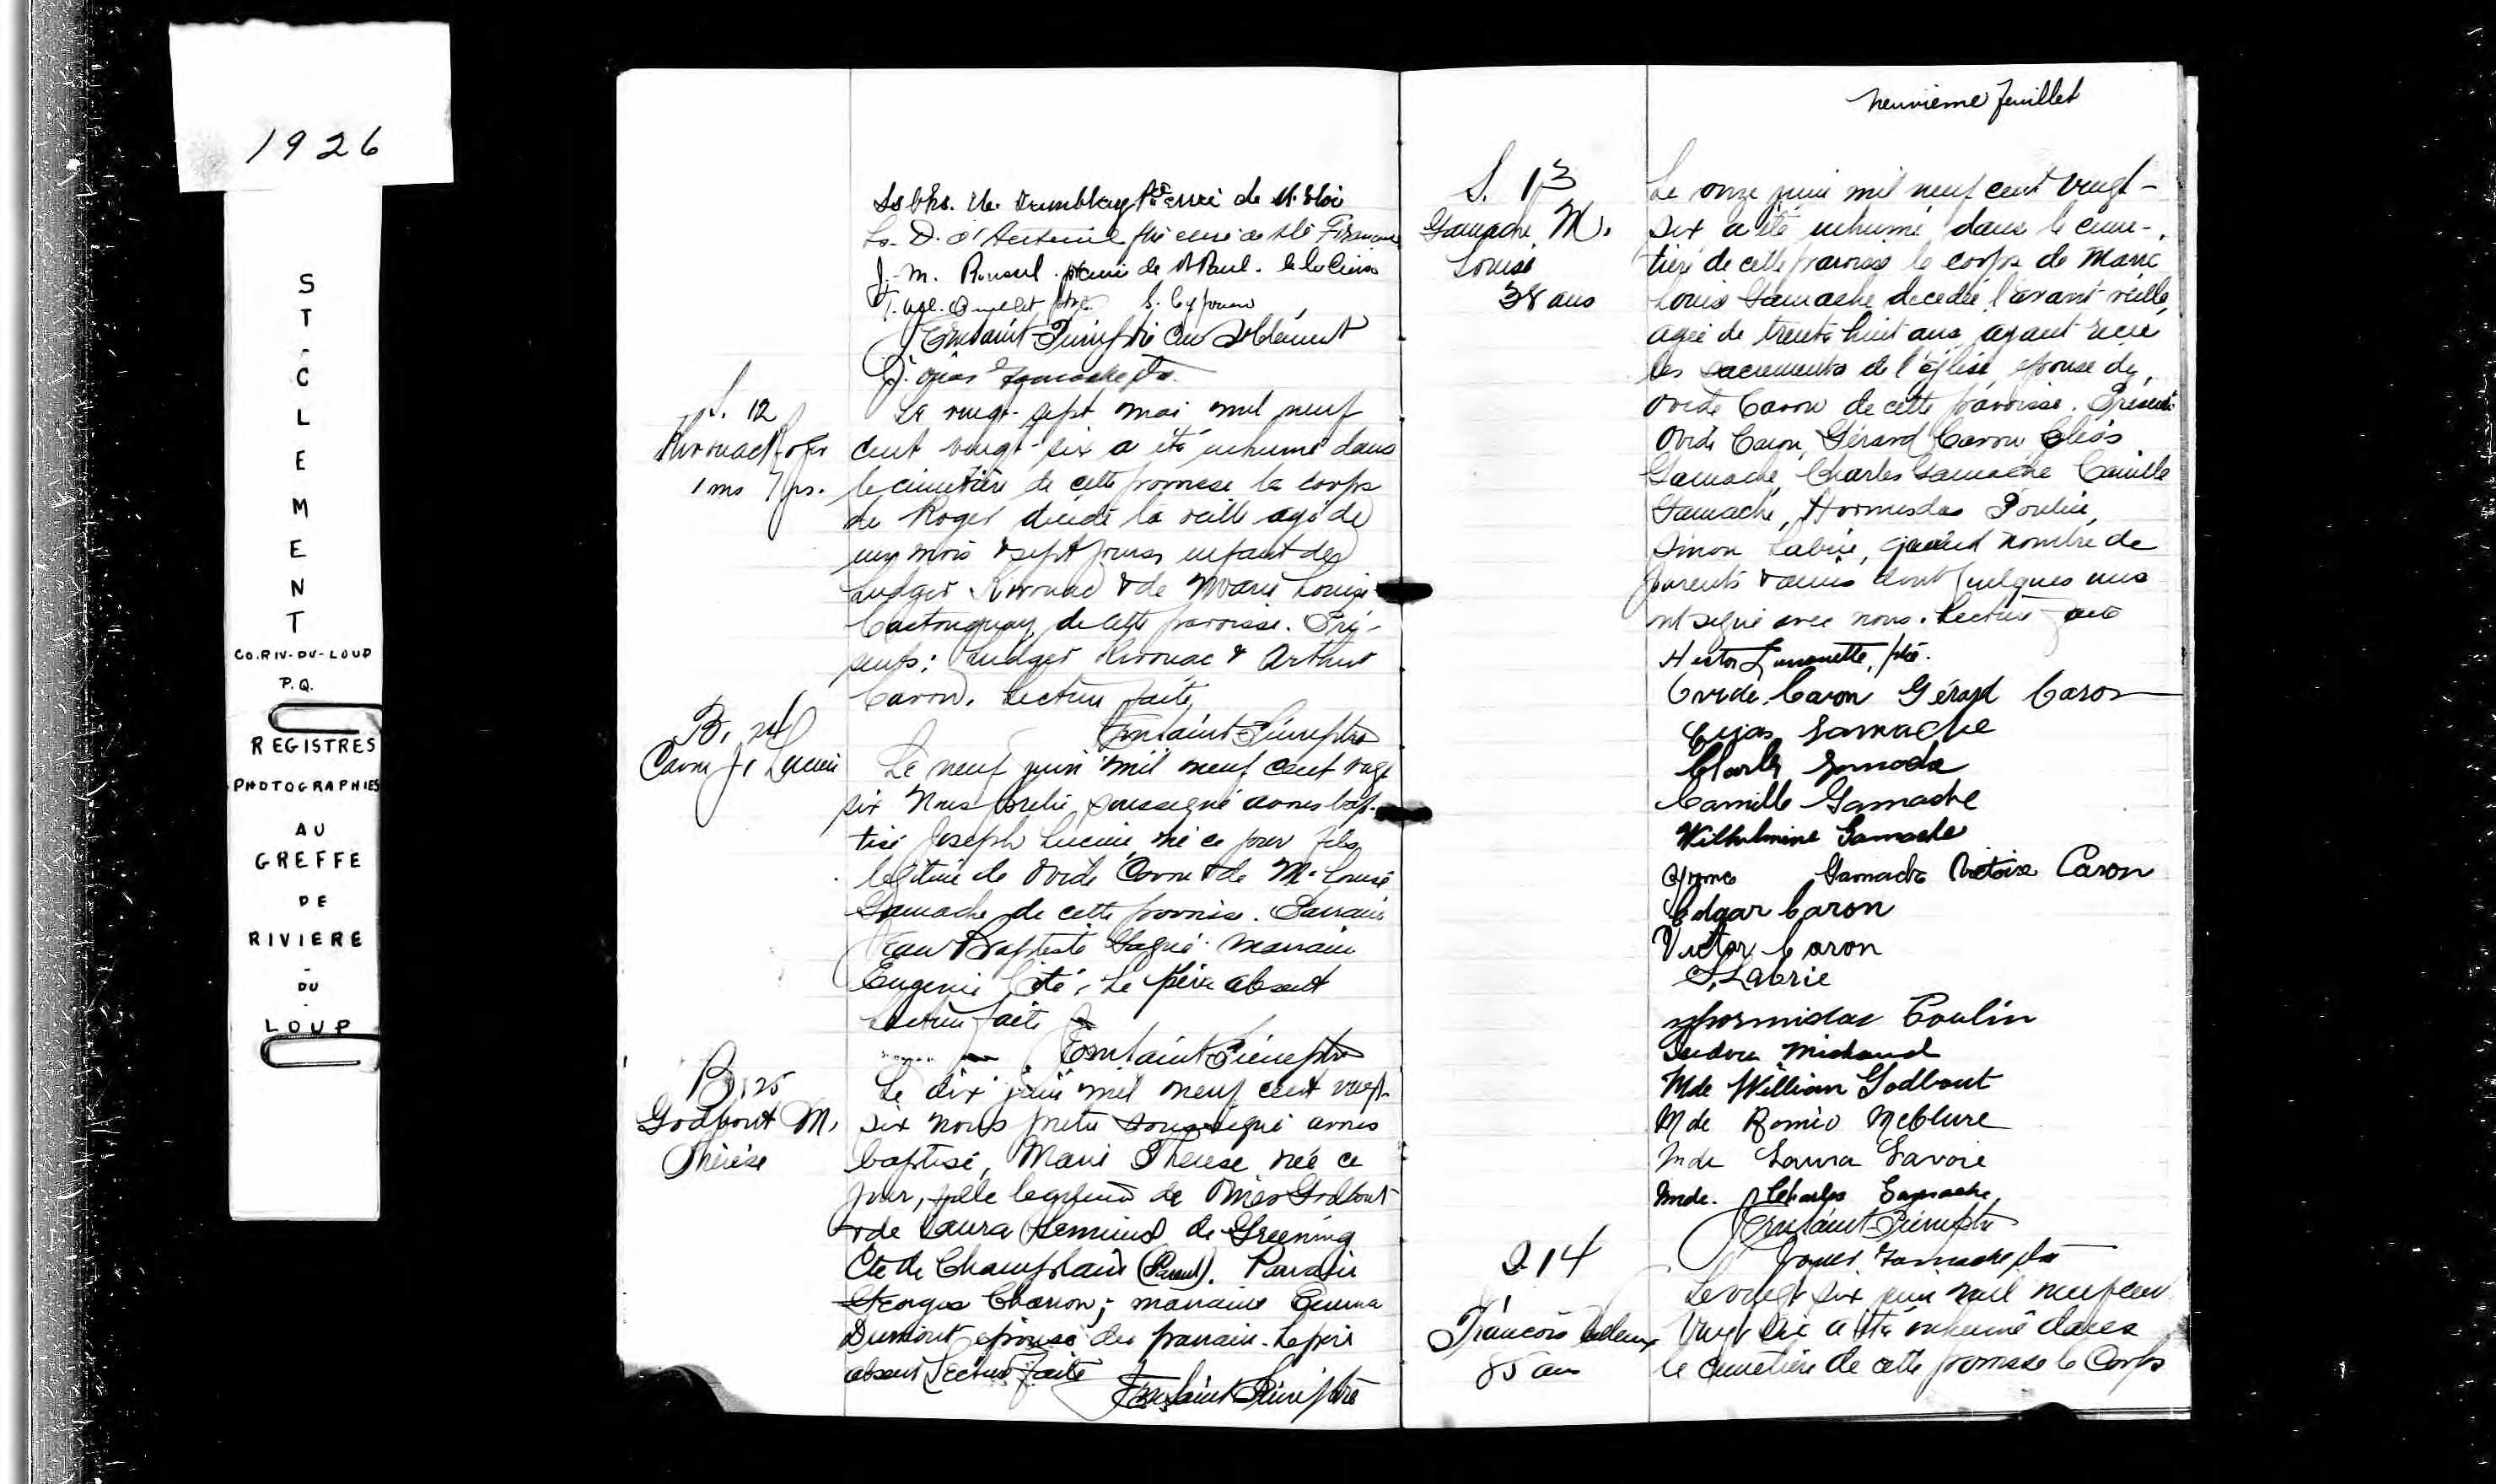 1926
ST-CLEMENT
CO.RIV-DU-LOUP
P.Q.
REGISTRES
PHOTOGRAPHIES
AU
GREFFE
DE
RIVIERE
-
DU
-
LOUP
curé de St. Eloi
J.-M. ptre curé de St Paul. de la Croix
St Clément
S. 12
1 ms 7 jrs.
Le vingt-sept mai mil neuf
cent vingt-six a été inhumé dans
le cimetière de cette paroisse le corps
de Roger décédé la veille agé de
un mois & sept jours enfant de
Ludger Kirouac & de Marie Louise
Castonguay de cette paroisse. Pré-
sents: Ludger Kirouac & Arthur
Caron. Lecture faite
B. 24
Caron J. Lucien
Le neuf juin mil neuf cent vingt
six Nous prêtre soussigné avons bap-
tisé Joseph Lucien né ce jour fils
légitime de Ovide Caron & de M. Louise
Gamache de cette paroisse. Parrain
Jean Baptiste Gagné. marraine
Eugenie Côté. Le père absent
Lecture faite
B. 25
Godbout M.
Thérèse
Le dix juin mil neuf cent vingt-
six nous prêtre soussigné avons
baptisé, Marie Thérèse née ce
jour, fille légitime de Godbout
& de Laura de Greening
Cté de Champlain. Parrain
Georges Charron; marraine Emma
Dumont épouse du parrain. Le père
absent Lecture faite
neuvième feuillet
S. 13
Gamache M.
Louise
38 ans
Le onze juin mil neuf cent vingt-
six a été inhumé dans le cime-
tière de cette paroisse le corps de Marie
Louise Gamache decedée l'avant-veille
agée de trente huit ans ayant reçu
les sacrements de l'église épouse de
Ovide Caron de cette paroisse. Présents
Ovide Caron, Gérard Caron,
Gamache, Charles Gamache Camille
Gamache, Hormisdas Poulin,
Simon Labrie, grand nombre de
parents & amis dont quelques uns
ont signé avec nous. Lecture faite
Ovide Caron Gérard Caron
Gamache
Camille Gamache
Wilhelmine Gamache
Gamache Victoire Caron
Edgar Caron
Victor Caron
S. Labrie
Hormisdas Poulin
Michaud
Mde William Godbout
Mde Roméo McClure
Mde Laura Savoie
Mde. Charles Gamache
S. 14
François
85 ans
Le vingt six juin mil neuf cent
vingt six a été inhumé dans
le cimetière de cette paroisse le Corps